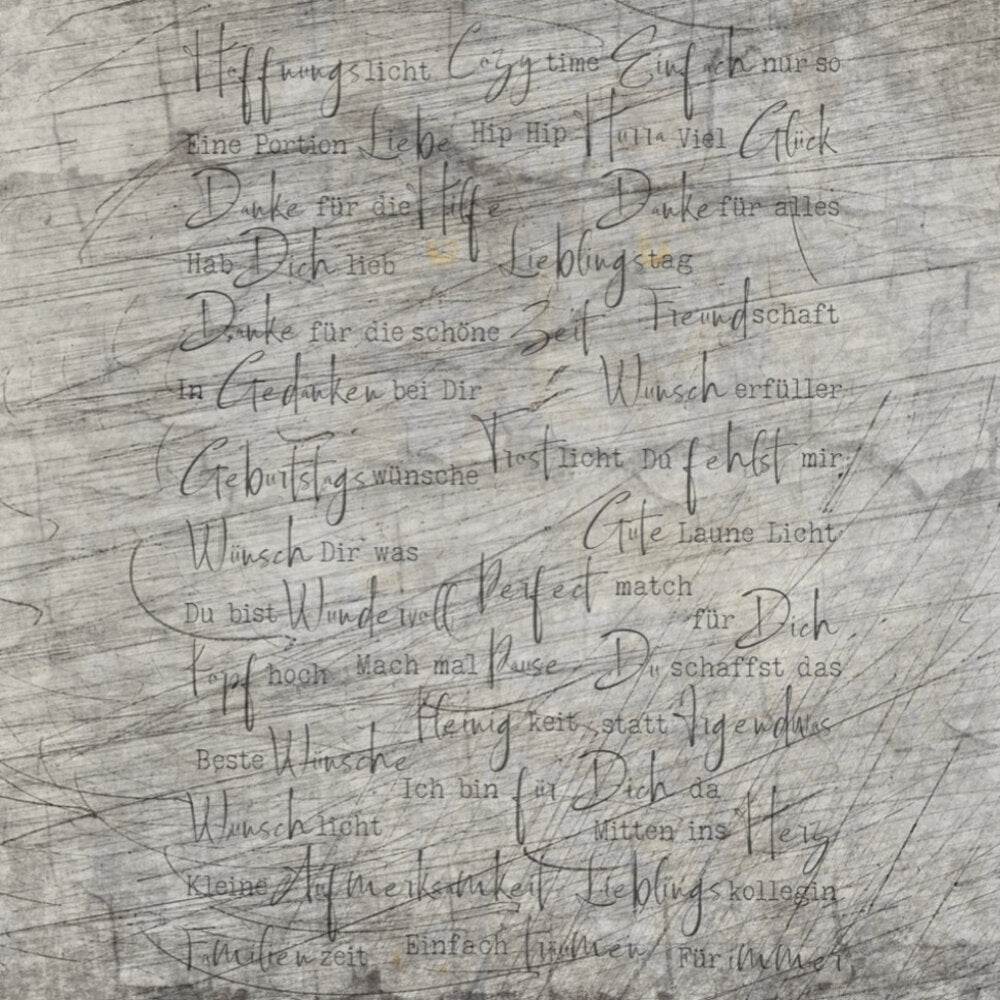 Hoffnungslicht Cozy time Einfach nur so
Eine Portion Liebe Hip Hip Hulla Viel Glück
Danke für die Hilfe Danke für alles
Hab Dich lieb Lieblingstag
Danke für die schöne Zeit Freundschaft
In Gedanken bei Dir Wunsch erfüller
Geburtstagswünsche Trostlicht Du fehlst mir
Wünsch Dir was Gute Laune Licht
Du bist Wundervoll Perfect match
für Dich
Kopf hoch Mach mal Pause Du schaffst das
Heinigkeit statt Irgendwas
Beste Wünsche
Ich bin für Dich da
Wunschlicht Mitten ins Herz
Kleine Aufmerksamkeit Lieblingskollegin
Familienzeit Einfach träumen Für immer